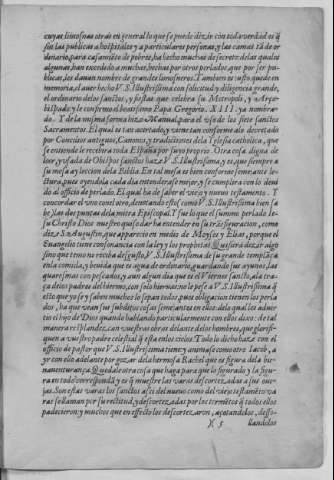 cuyas limosnas otras en general lo que se puede dizir con toda verdad es q̃
son las publicas a hospitales y a particulares personas, y las camas tã de or
dinario, para casamiẽto de pobres, ha hecho muchas de secreto: de las quales
algunas, han excedido a muchas, hechas por otros perlados, que por ser pu-
blicas, les dauan nombre de grandes limosneros. Tambien es justo, quede en
memoria, el auer hecho V.S. Illustrissima con solicitud y diligencia grande,
el ordinario de los sanctos, y fiestas que celebra su Metropoli, y Arço-
bispado y le confirmo el beatissimo Papa Gregorio XIII. ya nombra-
do. Y de la misma forma hizo Manual, para el vso de los siete sanctos
Sacramentos. El qual es tan acertado, y viene tan conforme a lo decretado
por Concilios antiguos, Canones, y tradiciones de la Iglesia catholica, que
se entiende le recibira toda España por suyo proprio. Otra cosa digna de
loor, y vsada de Obispos sanctos haze V.S. Illustrissima, y es, que siempre a
su mesa ay leccion de la Biblia. En tal mesa es bien conforme semejante le-
ctura, pues oyendola cada dia entendera se mejor, y se cumplira con lo deui
do al officio de perlado. El qual ha de saber el viejo y nueuo testamento. Y
concordar el vno con el otro, denotando esto (como V.S. Illustrissima bien sa
be) las dos puntas de la mitra Episcopal. Y fue lo que el summo perlado Ie-
su Christo Dios nuestro quiso dar ha entender en su trãsfiguracion, como
dize S. Augustin, que aparecio en medio de Moyses y Elias, porque el
Euangelio tiene consonancia con la ley y los prophetas. Quisiera dezir algo
sino que temo no reciba desgusto, V.S. Illustrissima de su grande templãça
en la comida, y beuida que es agua de ordinario, guardando sus ayunos, las
quaresmas con pescados, y aun algun dia que es el Viernes sancto, a la tra
ça de los padres del hiermo, con solo hieruas: no le pese a V.S. Illustrissima q̃
esto que yo se y saben muchos lo sepan todos, pues obligacion tienen los perla
dos, ha que vean sus subditos cosas semejantes en ellos: de la qual los aduier
te el hijo de Dios quando hablando particularmente con ellos dixo: de tal
manera resplandez, can vuestras obras delante de los hombres, que glorifi-
quen a vuestro padre celestial q̃ esta en los cielos. Todo lo dicho haze con el
officio de pastor que V.S. Illustrissima tiene: y anima se como otro Iacob, a
yr con el adelante por gozar de la hermosa Rachel que es figura de la bie-
nauenturança. Quedale otra cosa que haga para que lo figurado y la figu-
ra en todo correspondã y es q̃ muestre las varas descortezadas a sus oue-
jas. Son estas varas los sanctos assi del nueuo como del viejo testamẽto va
ras se llaman por su rectitud, y descortezadas por los tormẽtos q̃ todos ellos
padecieron, y muchos que en effecto los descortezaron, açotandolos, desso-
Y 5 llandolos